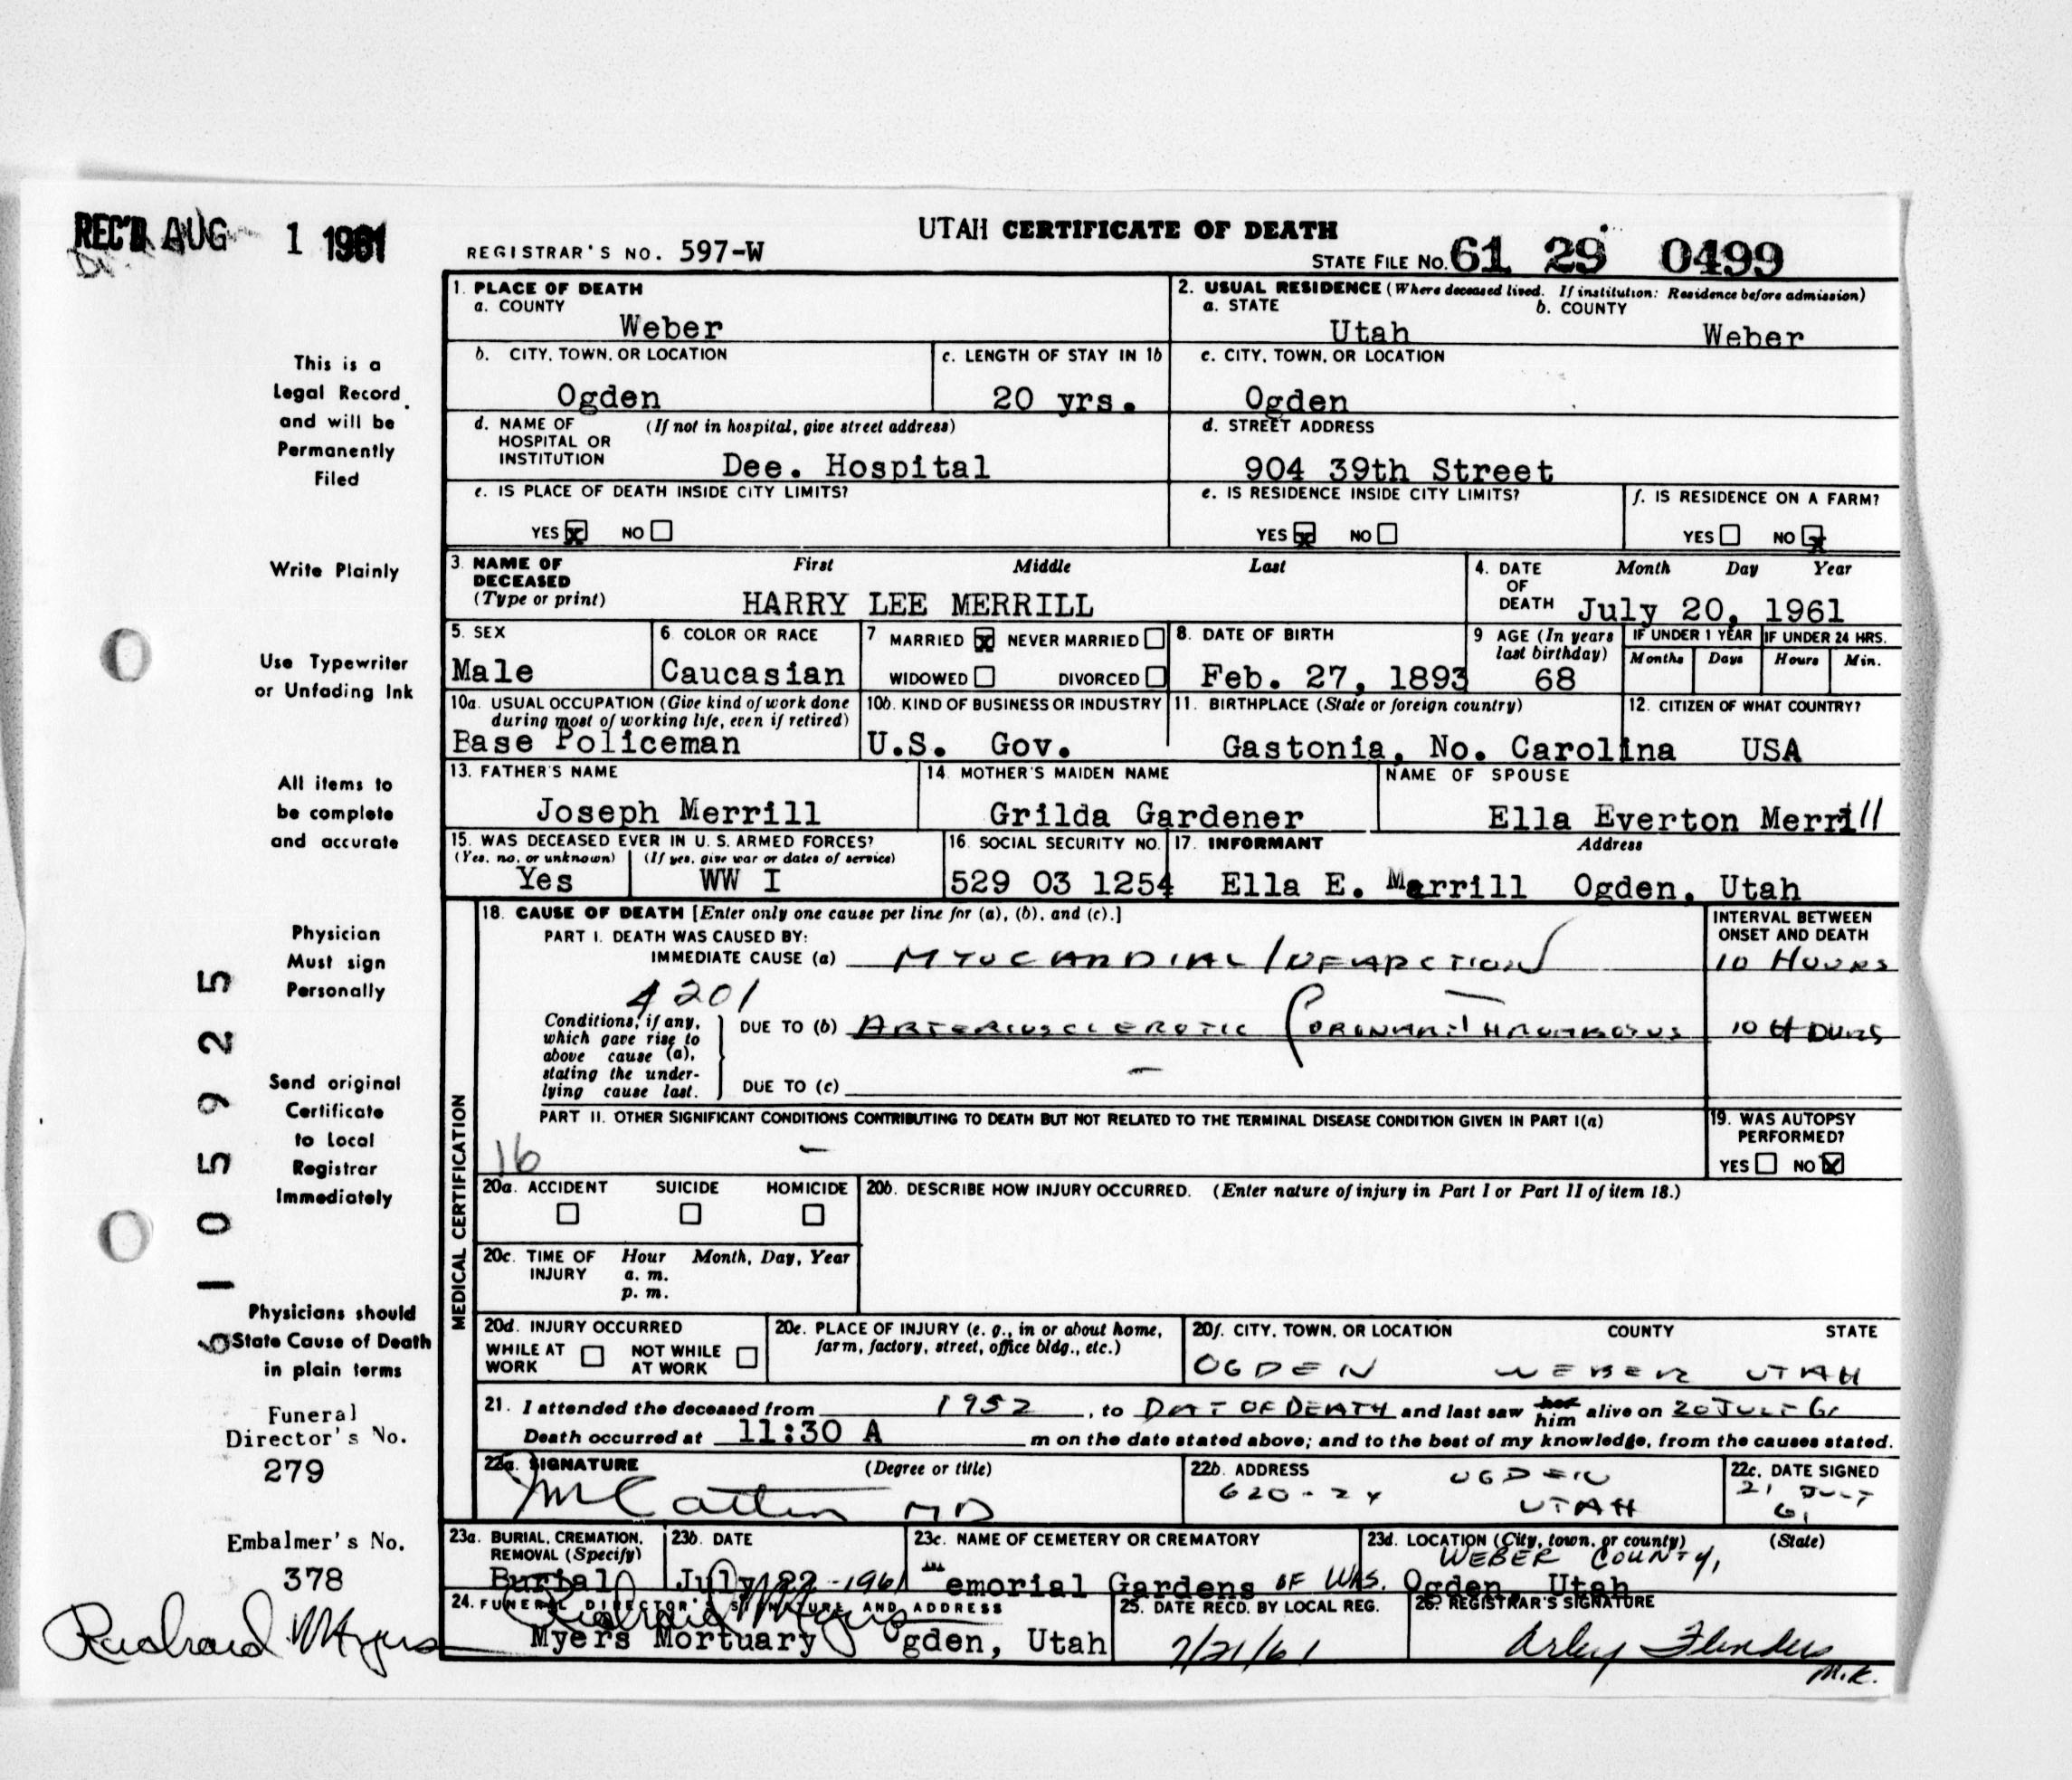 REC'D AUG 1 1961
UTAH CERTIFICATE OF DEATH
REGISTRAR'S NO. 597-W
STATE FILE No. 61 29 0499
1. PLACE OF DEATH
a. COUNTY
Weber
2. USUAL RESIDENCE (Where deceased lived. If institution: Residence before admission)
a. STATE b. COUNTY
Utah Weber
b. CITY, TOWN, OR LOCATION
Ogden
c. LENGTH OF STAY IN 1b
20 yrs.
c. CITY, TOWN, OR LOCATION
Ogden
d. NAME OF HOSPITAL OR INSTITUTION (If not in hospital, give street address)
Dee. Hospital
d. STREET ADDRESS
904 39th Street
e. IS PLACE OF DEATH INSIDE CITY LIMITS?
YES x NO
e. IS RESIDENCE INSIDE CITY LIMITS?
YES x NO
f. IS RESIDENCE ON A FARM?
YES NO x
3. NAME OF DECEASED (Type or print) First Middle Last
HARRY LEE MERRILL
4. DATE OF DEATH Month Day Year
July 20, 1961
5. SEX
Male
6. COLOR OR RACE
Caucasian
7 MARRIED x NEVER MARRIED
WIDOWED DIVORCED
8. DATE OF BIRTH
Feb. 27, 1893
9 AGE (In years last birthday)
68
IF UNDER 1 YEAR IF UNDER 24 HRS.
Months Days Hours Min.
10a. USUAL OCCUPATION (Give kind of work done during most of working life, even if retired)
Base Policeman
10b. KIND OF BUSINESS OR INDUSTRY
U.S. Gov.
11. BIRTHPLACE (State or foreign country)
Gastonia, No. Carolina
12. CITIZEN OF WHAT COUNTRY?
USA
13. FATHER'S NAME
Joseph Merrill
14. MOTHER'S MAIDEN NAME
Grilda Gardener
NAME OF SPOUSE
Ella Everton Merrill
15. WAS DECEASED EVER IN U. S. ARMED FORCES?
(Yes, no, or unknown) (If yes, give war or dates of service)
Yes WW I
16. SOCIAL SECURITY NO.
529 03 1254
17. INFORMANT Address
Ella E. Merrill Ogden, Utah
MEDICAL CERTIFICATION
18. CAUSE OF DEATH [Enter only one cause per line for (a), (b), and (c).]
INTERVAL BETWEEN ONSET AND DEATH
PART I. DEATH WAS CAUSED BY:
IMMEDIATE CAUSE (a) MYOCARDIAL INFARCTION 10 HOURS
4201
Conditions, if any, which gave rise to above cause (a), stating the underlying cause last.
DUE TO (b) ARTERIOSCLEROTIC CORONARY THROMBOSUS 10 HOURS
DUE TO (c) –
PART II. OTHER SIGNIFICANT CONDITIONS CONTRIBUTING TO DEATH BUT NOT RELATED TO THE TERMINAL DISEASE CONDITION GIVEN IN PART I(a)
16 –
19. WAS AUTOPSY PERFORMED?
YES NO x
20a. ACCIDENT SUICIDE HOMICIDE
20b. DESCRIBE HOW INJURY OCCURRED. (Enter nature of injury in Part I or Part II of item 18.)
20c. TIME OF INJURY Hour Month, Day, Year
a. m.
p. m.
20d. INJURY OCCURRED
WHILE AT WORK NOT WHILE AT WORK
20e. PLACE OF INJURY (e. g., in or about home, farm, factory, street, office bldg., etc.)
20f. CITY, TOWN, OR LOCATION COUNTY STATE
OGDEN WEBER UTAH
21. I attended the deceased from 1952, to DAT OF DEATH and last saw her him alive on 20 JULY 61
Death occurred at 11:30 A m on the date stated above; and to the best of my knowledge, from the causes stated.
22a. SIGNATURE (Degree or title)
MD
22b. ADDRESS
620-24 OGDEN
UTAH
22c. DATE SIGNED
21 JULY
61
23a. BURIAL, CREMATION, REMOVAL (Specify)
Burial
23b. DATE
July 22 -1961
23c. NAME OF CEMETERY OR CREMATORY
emorial Gardens OF WAS.
23d. LOCATION (City, town, or county) (State)
WEBER COUNTY,
Ogden, Utah
24. FUNERAL DIRECTOR'S SIGNATURE AND ADDRESS
Richard Myers
Myers Mortuary Ogden, Utah
25. DATE RECD. BY LOCAL REG.
7/21/61
26. REGISTRAR'S SIGNATURE
Arley Flinders
M.K.
This is a
Legal Record
and will be
Permanently
Filed
Write Plainly
Use Typewriter
or Unfading Ink
All items to
be complete
and accurate
Physician
Must sign
Personally
Send original
Certificate
to Local
Registrar
Immediately
Physicians should
State Cause of Death
in plain terms
Funeral
Director's No.
279
Embalmer's No.
378
Richard Myers
6105925